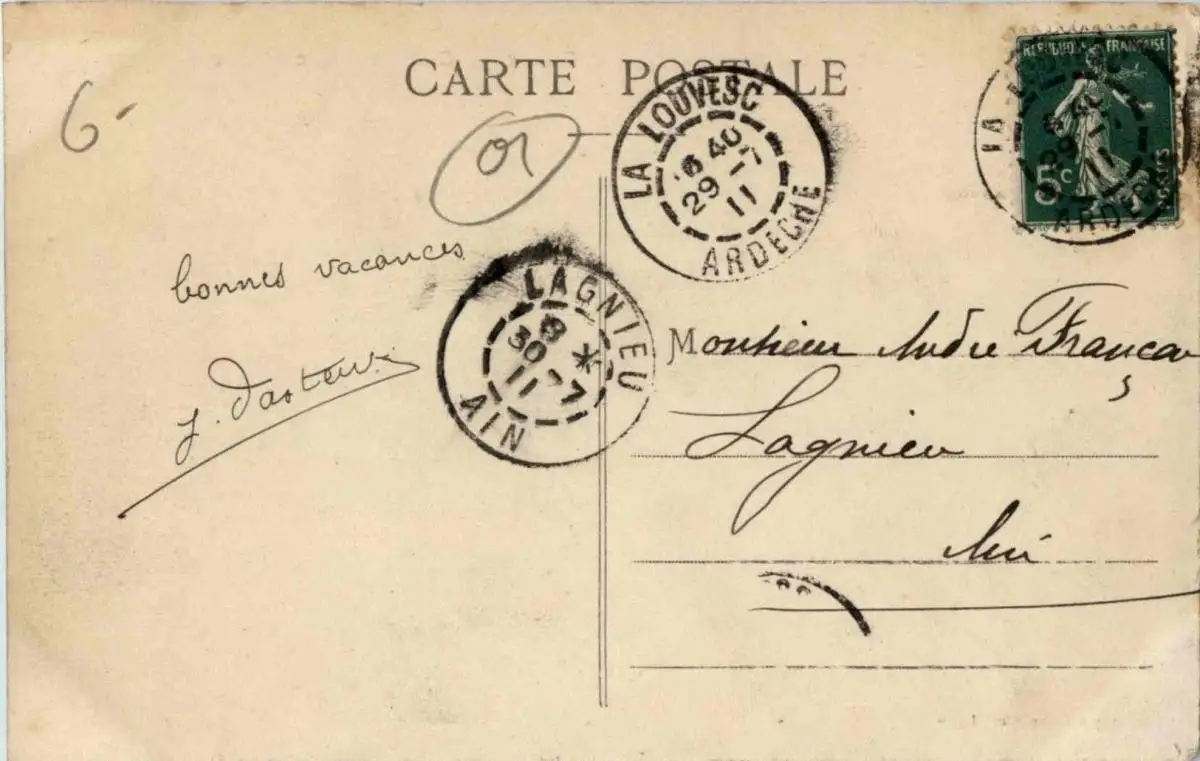 CARTE POSTALE
6-
01
LA LOUVESC
40
29-7
11
ARDECHE
REPUBLIQUE FRANÇAISE
5c
POSTES
LA LOUVESC
29-7
11
ARDECHE
bonnes vacances
LAGNIEU
8 *
30-7
11
AIN
Monsieur André Françon
Lagnieu
Ain